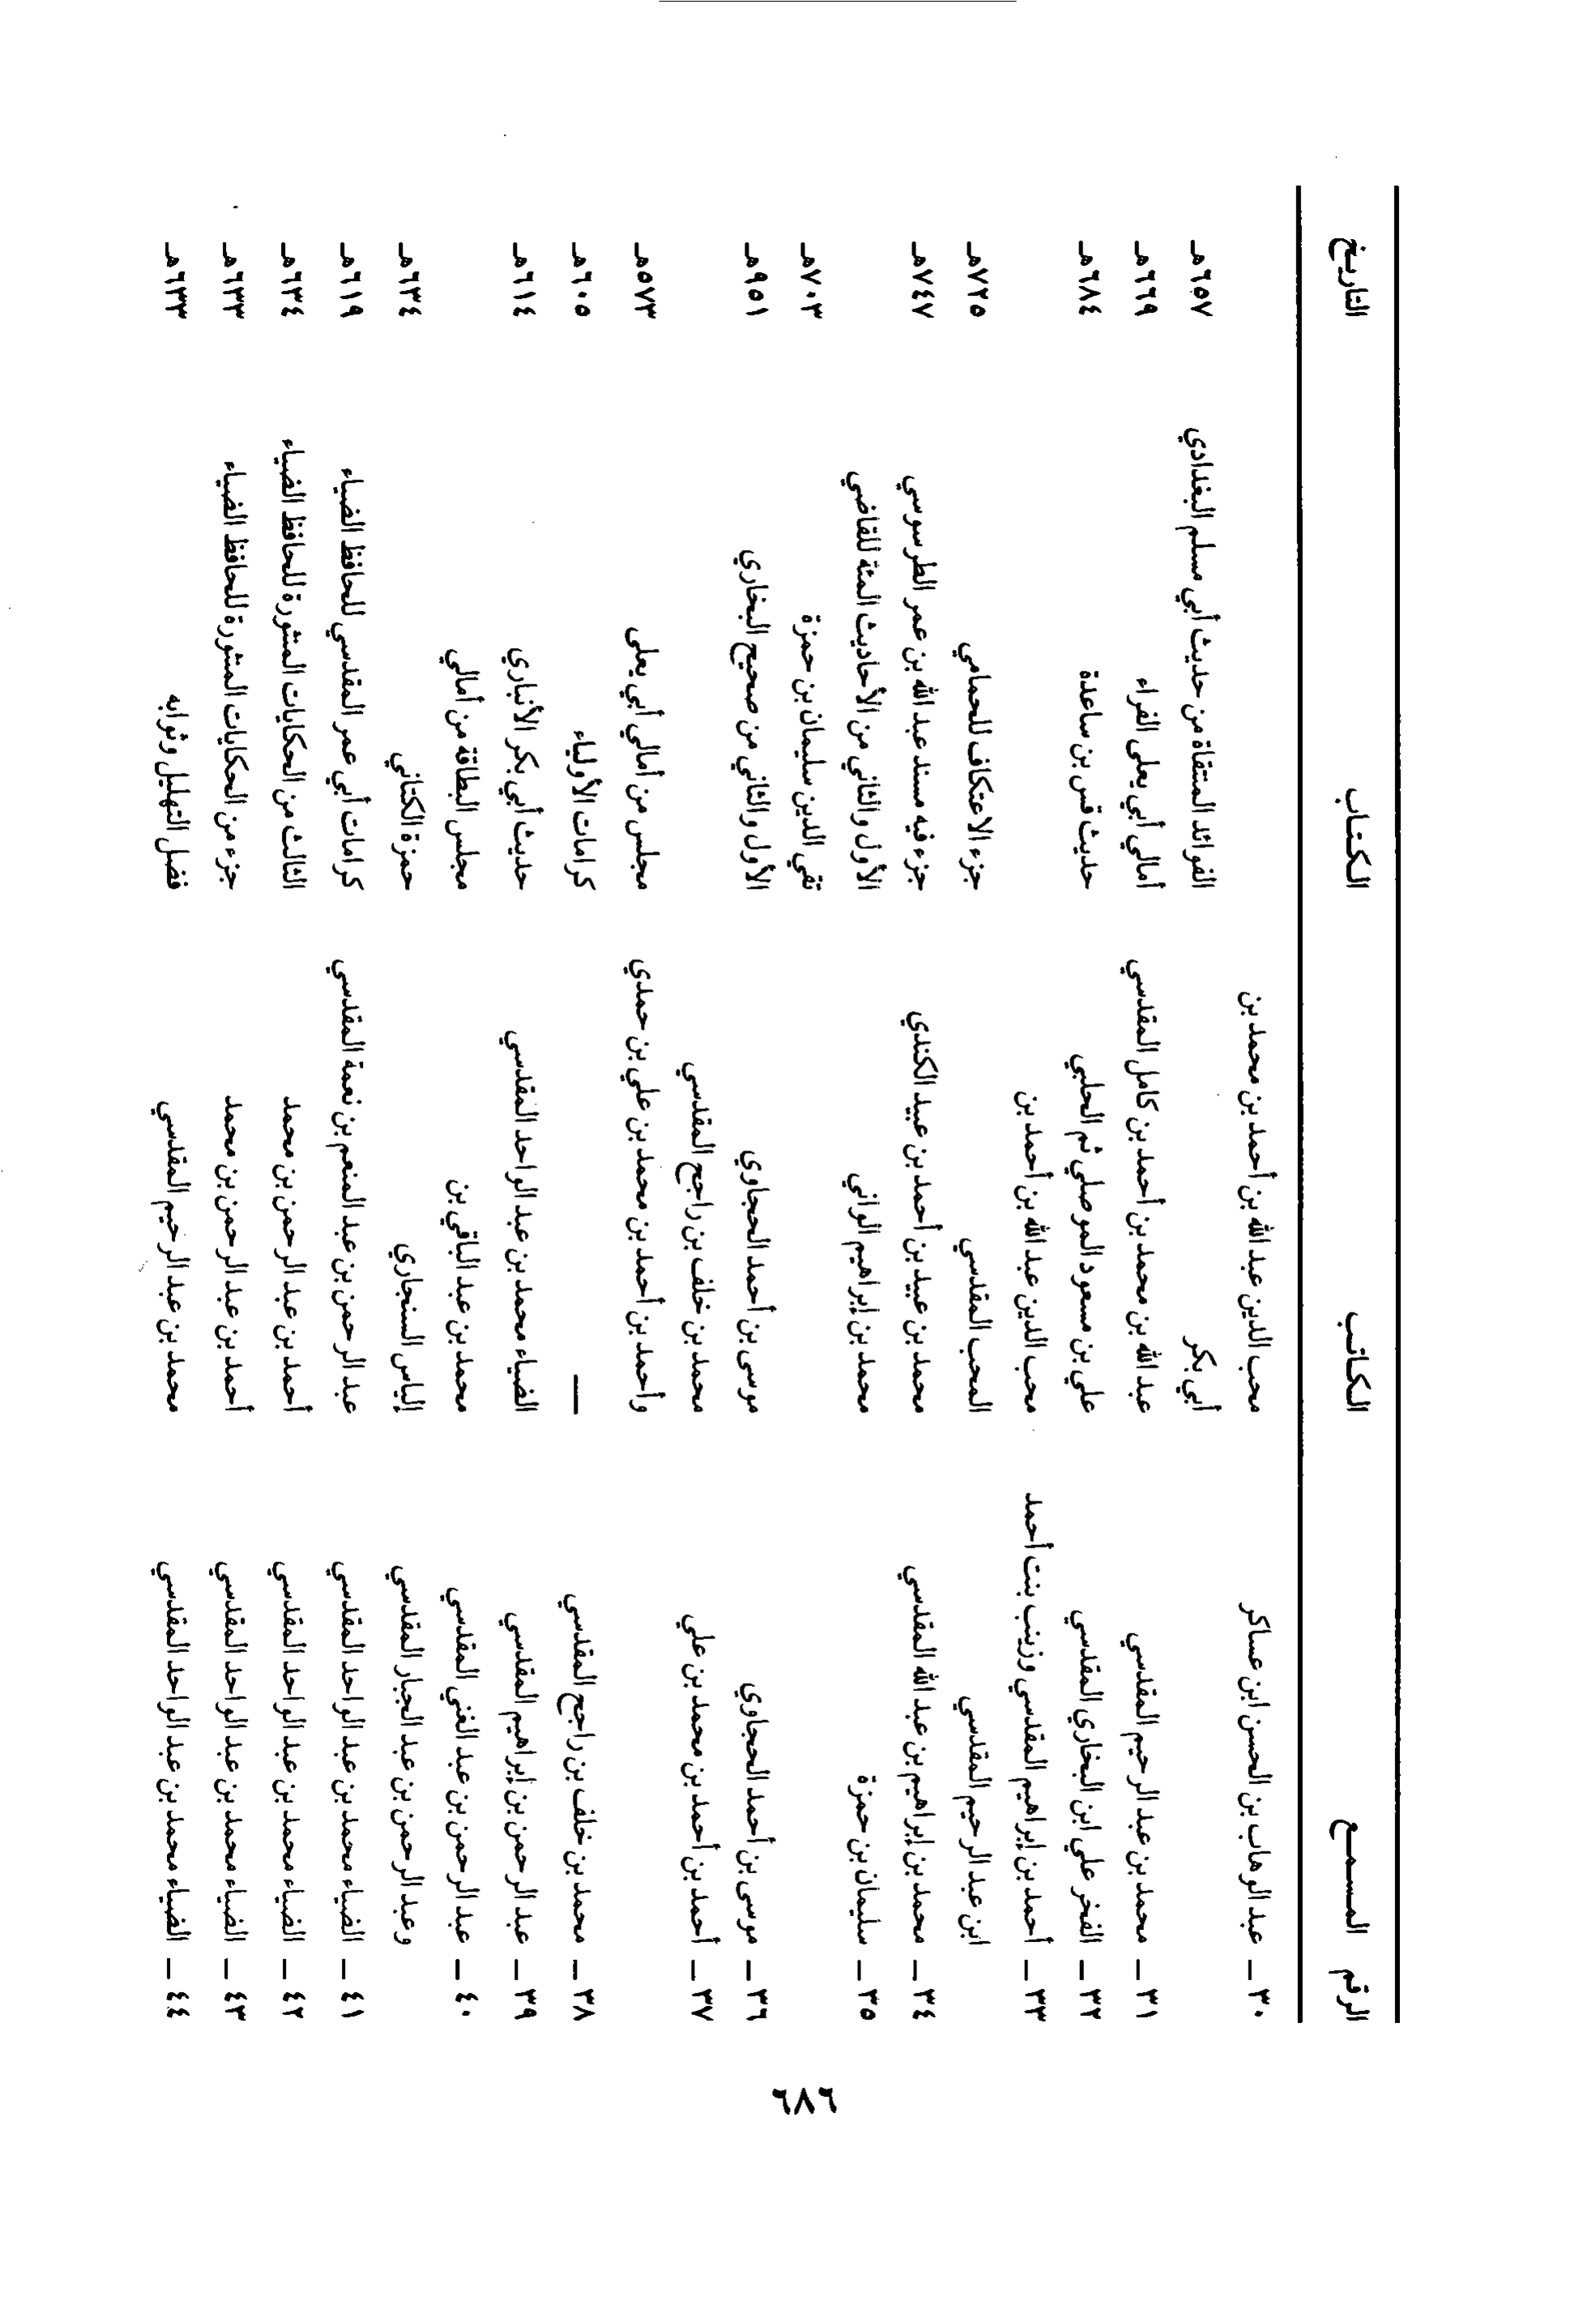 الرقم المسمع الكاتب الكتاب التاريخ
٣٠ ــ عبد الوهاب بن الحسن ابن عساكر محب الدين عبد الله بن أحمد بن محمد بن
أبي بكر الفوائد المنتقاة من حديث أبي مسلم البغدادي ٦٥٧هـ
٣١ ــ محمد بن عبد الرحيم المقدسي عبد الله بن محمد بن أحمد بن كامل المقدسي أمالي أبي يعلى الفراء ٦٦٩هـ
٣٢ ــ الفخر علي ابن البخاري المقدسي علي بن مسعود الموصلي ثم الحلبي حديث قس بن ساعدة ٦٨٤هـ
٣٣ ــ أحمد بن إبراهيم المقدسي وزينب بنت أحمد محب الدين عبد الله بن أحمد بن
ابن عبد الرحيم المقدسي المحب المقدسي جزء الاعتكاف للحمامي ٧٢٥هـ
٣٤ ــ محمد بن إبراهيم بن عبد الله المقدسي محمد بن عبيد بن أحمد بن عبيد الكندي جزء فيه مسند عبد الله بن عمر الطرسوسي ٧٤٧هـ
٣٥ ــ سليمان بن حمزة محمد بن إبراهيم الواني الأول والثاني من الأحاديث المئة للقاضي
تقي الدين سليمان بن حمزة ٧٠٣هـ
٣٦ ــ موسى بن أحمد الحجاوي موسى بن أحمد الحجاوي الأول والثاني من صحيح البخاري ٩٥١هـ
٣٧ ــ أحمد بن أحمد بن محمد بن علي محمد بن خلف بن راجح المقدسي
وأحمد بن أحمد بن محمد بن علي بن حمدي مجلس من أمالي أبي يعلى ٥٧٣هـ
٣٨ ــ محمد بن خلف بن راجح المقدسي ــــ كرامات الأولياء ٦٠٥هـ
٣٩ ــ عبد الرحمن بن إبراهيم المقدسي الضياء محمد بن عبد الواحد المقدسي حديث أبي بكر الأنباري ٦١٤هـ
٤٠ ــ عبد الرحمن بن عبد الغني المقدسي محمد بن عبد الباقي بن مجلس البطاقة من أمالي
وعبد الرحمن بن عبد الجبار المقدسي إلياس السنجاري حمزة الكتاني ٦٣٤هـ
٤١ ــ الضياء محمد بن عبد الواحد المقدسي عبد الرحمن بن عبد المنعم بن نعمة المقدسي كرامات أبي عمر المقدسي للحافظ الضياء ٦١٩هـ
٤٢ ــ الضياء محمد بن عبد الواحد المقدسي أحمد بن عبد الرحمن بن محمد الثالث من الحكايات المنثورة للحافظ الضياء ٦٣٤هـ
٤٣ ــ الضياء محمد بن عبد الواحد المقدسي أحمد بن عبد الرحمن بن محمد جزء من الحكايات المنثورة للحافظ الضياء ٦٣٣هـ
٤٤ ــ الضياء محمد بن عبد الواحد المقدسي محمد بن عبد الرحيم المقدسي فضل التهليل وثوابه ٦٣٣هـ
٦٨٦